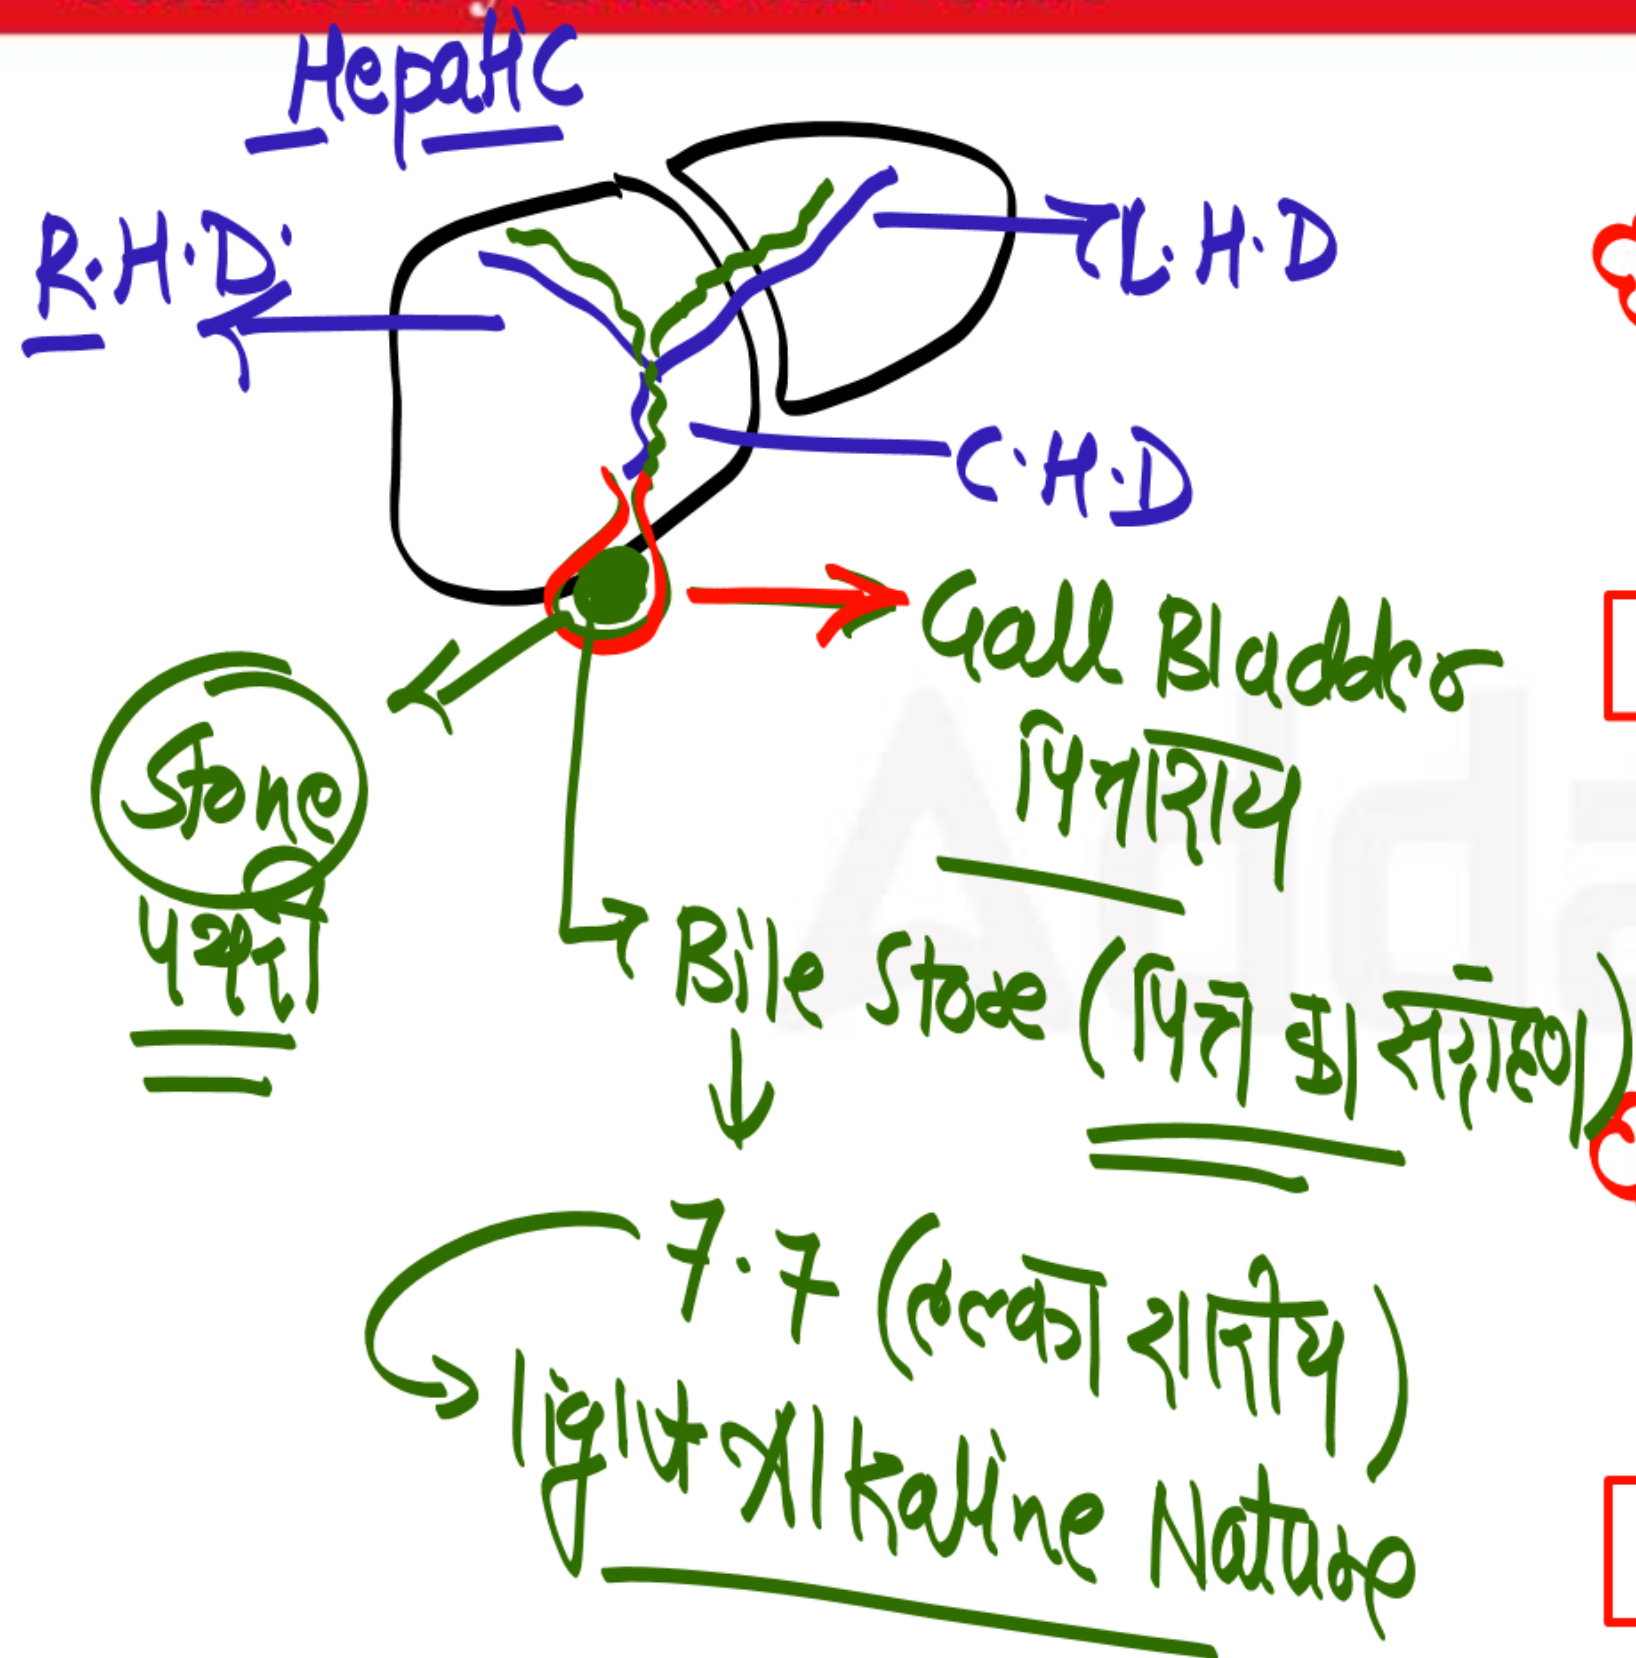 Hepatic
R.H.D.
L.H.D
C.H.D
Gall Bladder
पित्ताशय
Stone
पथरी
Bile Store (पित्त का संग्रहण)
7.7 (हल्का क्षारीय)
light Alkaline Nature
Adda